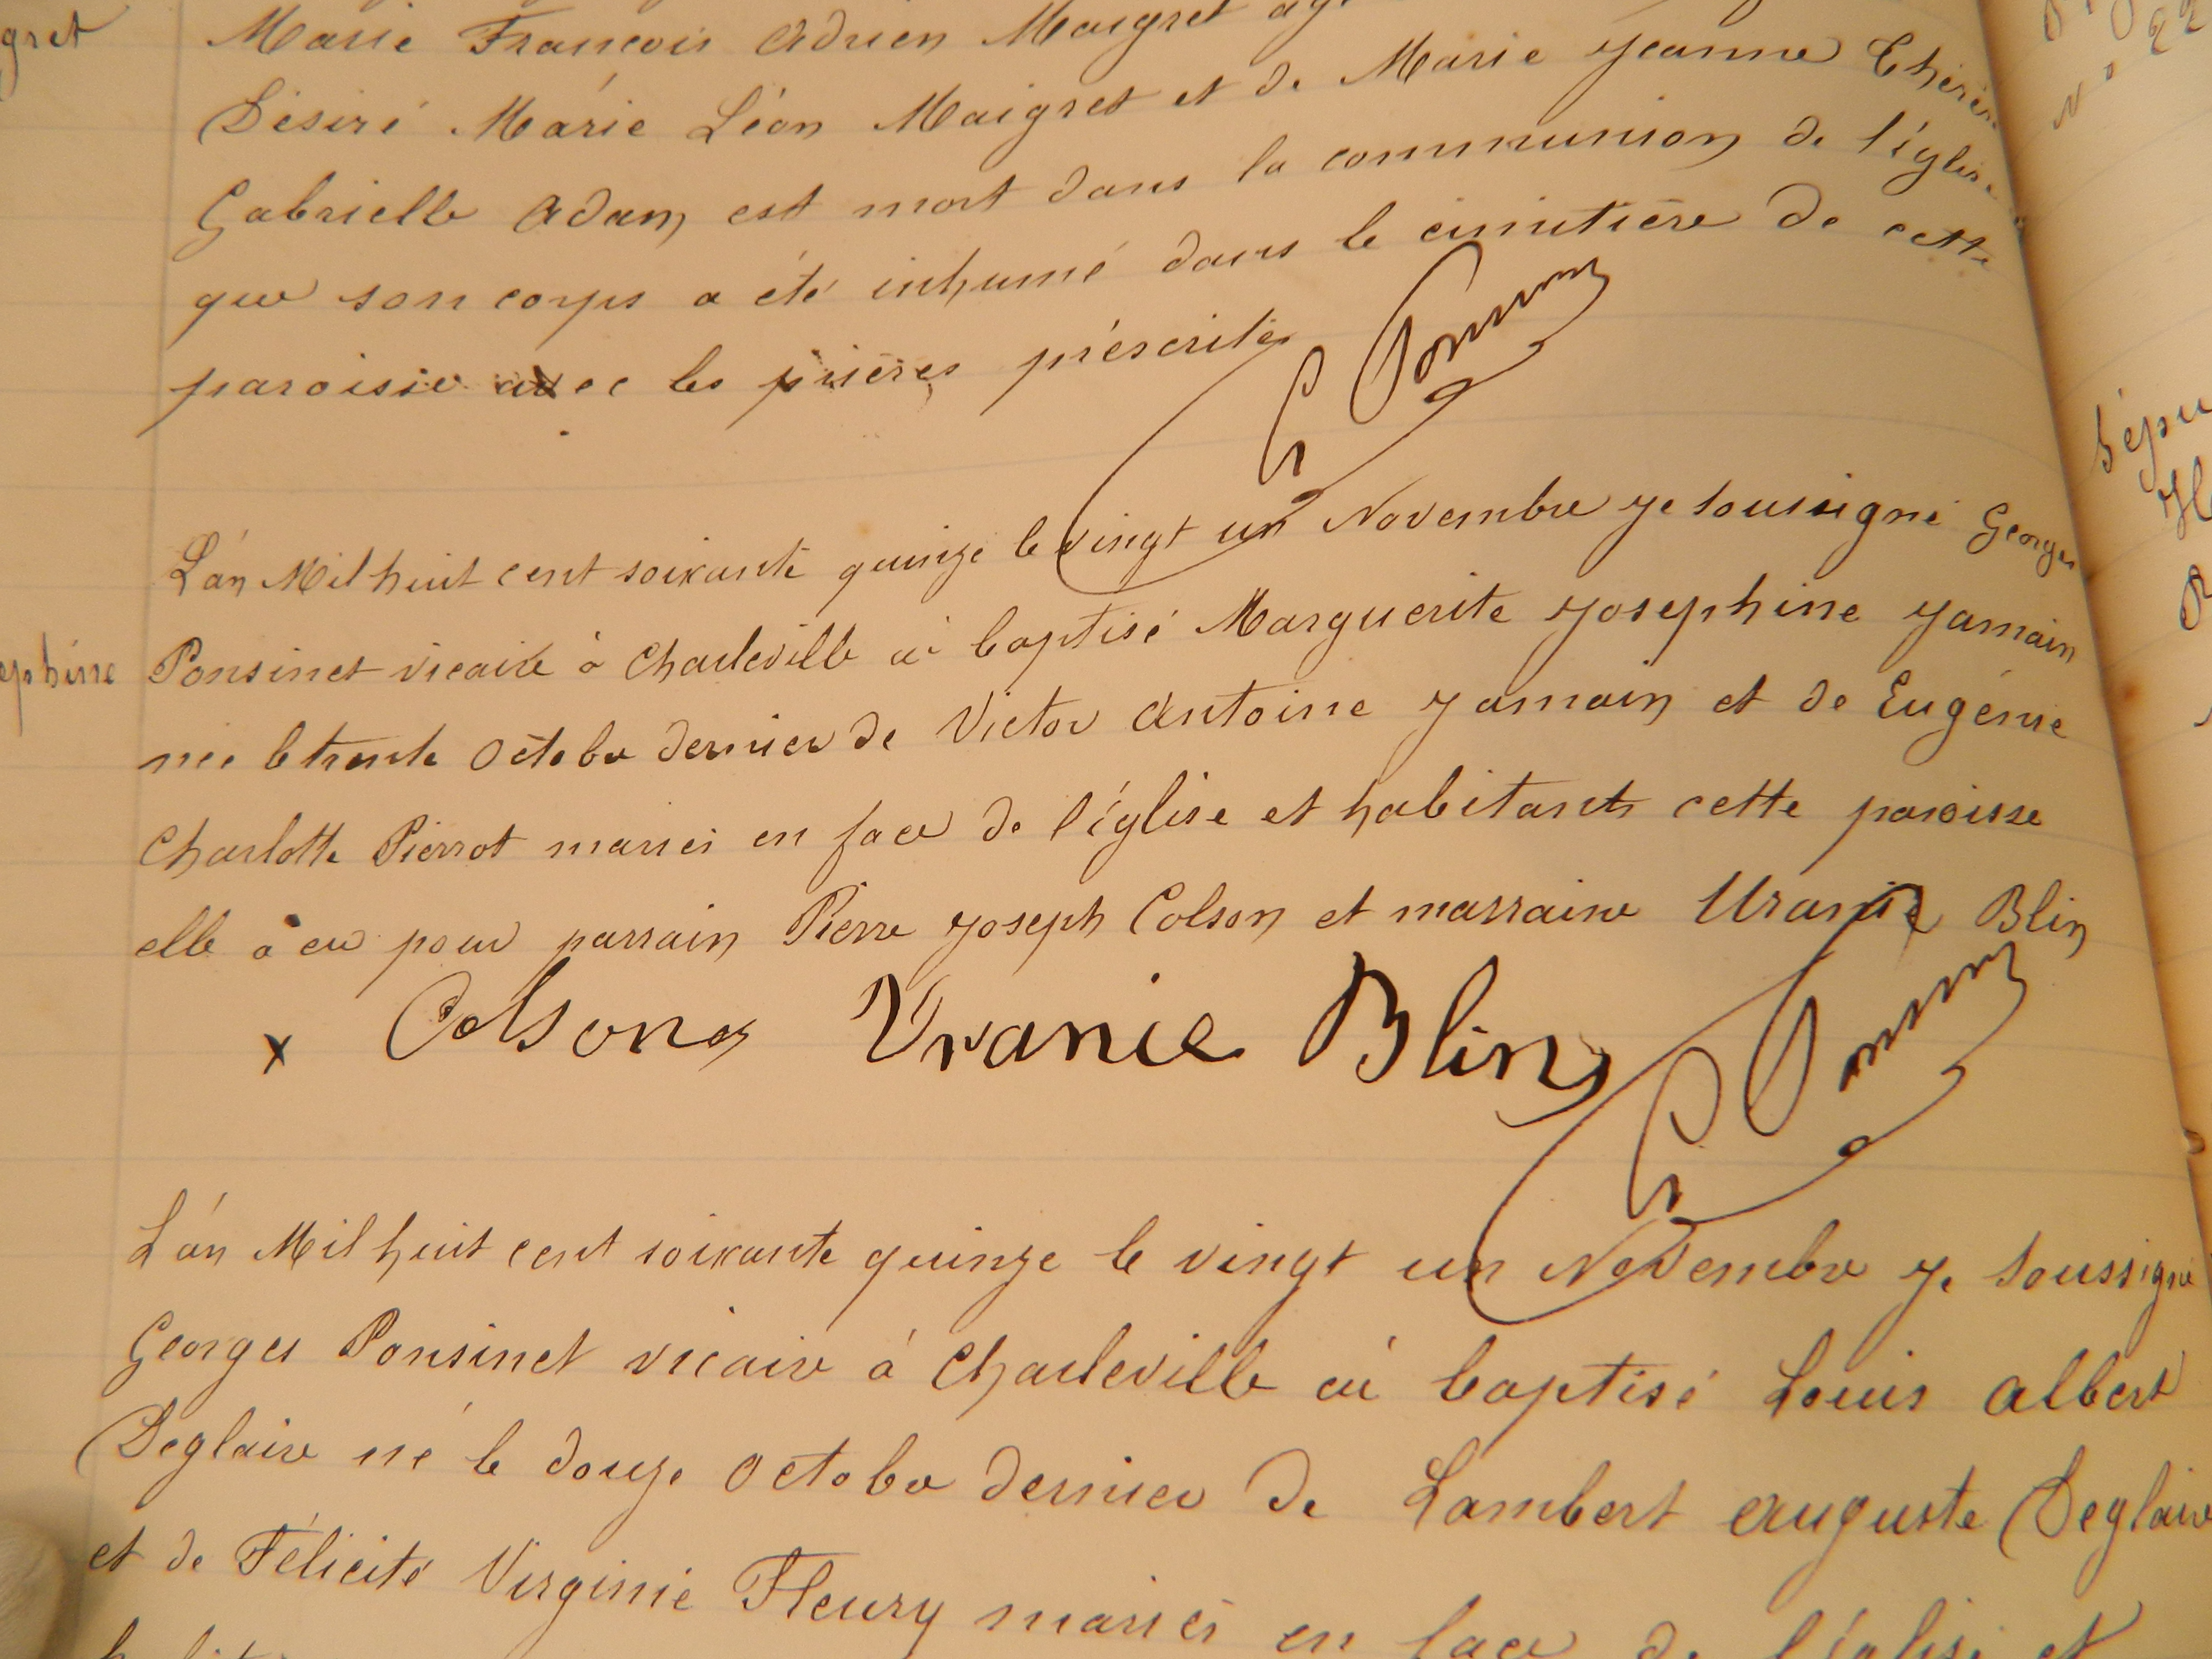 gret
Marie François Adrien Maigret ag
Désiré Marie Léon Maigret et de Marie Jeanne Thérès
Gabrielle Adam est mort dans la communion de l'église
que son corps a été inhumé dans le cimitière de cette
paroisse avec les prières préscrites
G Ponsin
L'an Mil huit cent soixante quinze le vingt un Novembre je soussigné Georges
ephine Ponsinet vicaire à Charleville ai baptisé Marguerite Josephine Jamain
née le trente Octobre dernier de Victor Antoine Jamain et de Eugénie
Charlotte Pierrot mariés en face de l'église et habitants cette paroisse
elle à eu pour parrain Pierre Joseph Colson et marraine Uranie Blin
x Colson Uranie Blin
G Ponsin
L'an Mil huit cent soixante quinze le vingt un Novembre je soussigné
Georges Ponsinet vicaire à Charleville ai baptisé Louis Albert
Deglaire né le douze Octobre dernier de Lambert Auguste Deglaire
et de Félicité Virginie Fleury mariés en face de l'église et
Sépu